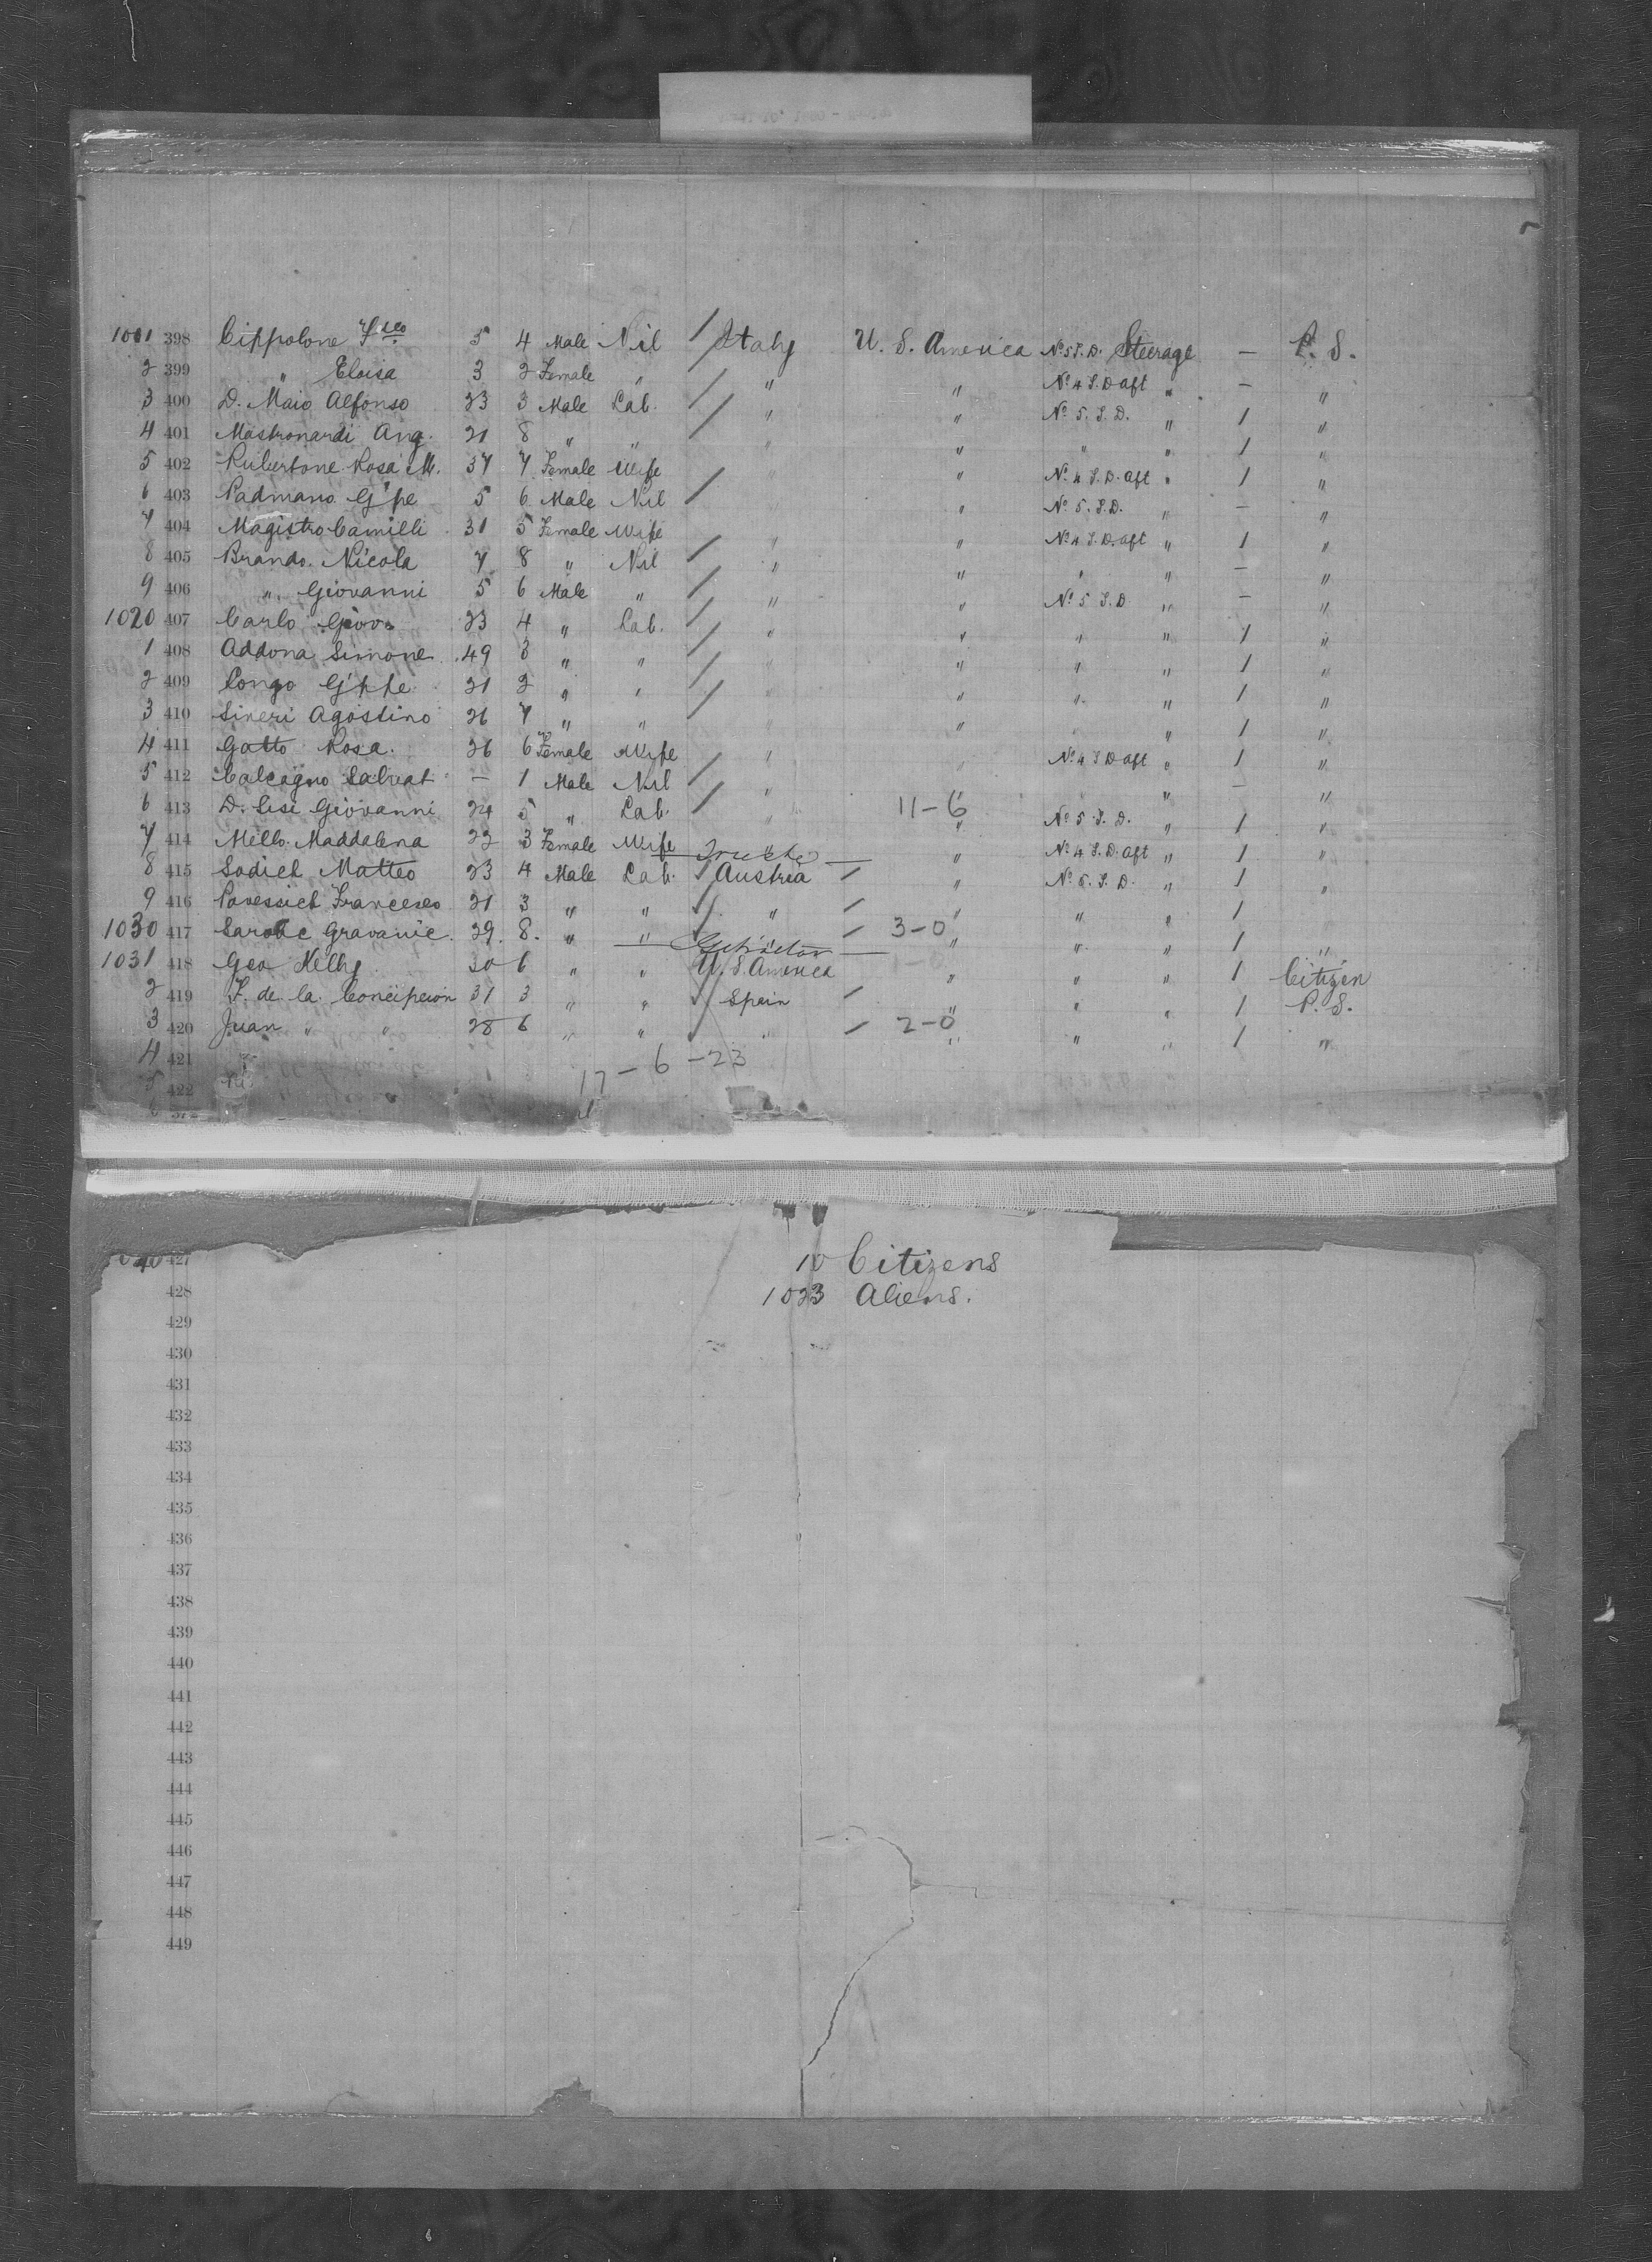 1001 398 Cippolone Fsco 5 4 Male Nil Italy U. S. America No 5 S.D. Steerage — P. S.
2 399 " Eloisa 3 2 Female " " " No 4 S.D aft " — "
3 400 D. Maio Alfonso 23 3 Male Lab. " " No 5. S. D. " 1 "
4 401 Mastronardi Ang. 21 8 " " " " " " 1 "
5 402 Rubertone Rosa M. 37 7 Female Wife " " No 4 S.D. aft " 1 "
6 403 Padmano G'pe 5 6 Male Nil " " No 5. S.D. " — "
7 404 Magistro Camilli 31 5 Female Wife " " No 4 S.D. aft " 1 "
8 405 Brando Nicola 7 8 " Nil " " " " — "
9 406 " Giovanni 5 6 Male " " " No 5 S.D " — "
1020 407 Carlo Giov. 23 4 " Lab. " " " " 1 "
1 408 Addona Simone 49 3 " " " " " " 1 "
2 409 Longo G'ppe 21 2 " " " " " " 1 "
3 410 Sineri Agostino 26 7 " " " " " " 1 "
4 411 Gatto Rosa. 26 6 Female Wife " " No 4 S D aft " 1 "
5 412 Calcagno Salvat — 1 Male Nil " " " — "
6 413 D. Lisi Giovanni 24 5 " Lab. " 11-6 " No 5 S. D. " 1 "
7 414 Mello Maddalena 22 3 Female Wife " " No 4 S.D. aft " 1 "
8 415 Sodich Matteo 23 4 Male Lab. Austria " No 5. S. D. " 1 "
9 416 Povessich Francesco 21 3 " " " " " " 1
1030 417 Gravanic 29. 8. " " " 3-0 " " " 1 "
1031 418 Geo Kelly 20 6 " " U. S. America " " " 1 Citizen
2 419 F. de la Concepcion 31 3 " " Spain " " " 1 P. S.
3 420 Juan " " 28 6 " " " 2-0 " " " 1 "
4 421
17-6-23
5 422
427
10 Citizens
428
1023 Aliens.
429
430
431
432
433
434
435
436
437
438
439
440
441
442
443
444
445
446
447
448
449